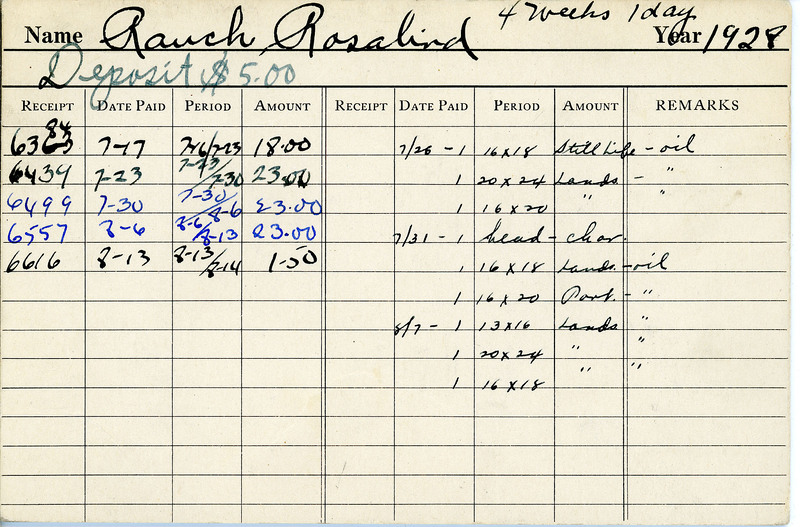 4 Weeks 1 day
Name Rauch, Rosalind Year 1928
Deposit $5.00
RECEIPT DATE PAID PERIOD AMOUNT RECEIPT DATE PAID PERIOD AMOUNT REMARKS
84
6363 7-17 7-16/7-23 18.00 7/26 - 1 16 x 18 Still Life - oil
6439 7-23 7-23/7-30 23.00 1 20 x 24 Lands - "
6499 7-30 7-30/8-6 23.00 1 16 x 20 "
6557 8-6 8-6/8-13 23.00 7/31 - 1 head - char.
6616 8-13 8-13/8-14 1-50 1 16 x 18 Lands. - oil
1 16 x 20 Port. - "
8/7 - 1 13 x 16 Lands "
1 20 x 24 " "
1 16 x 18 " "